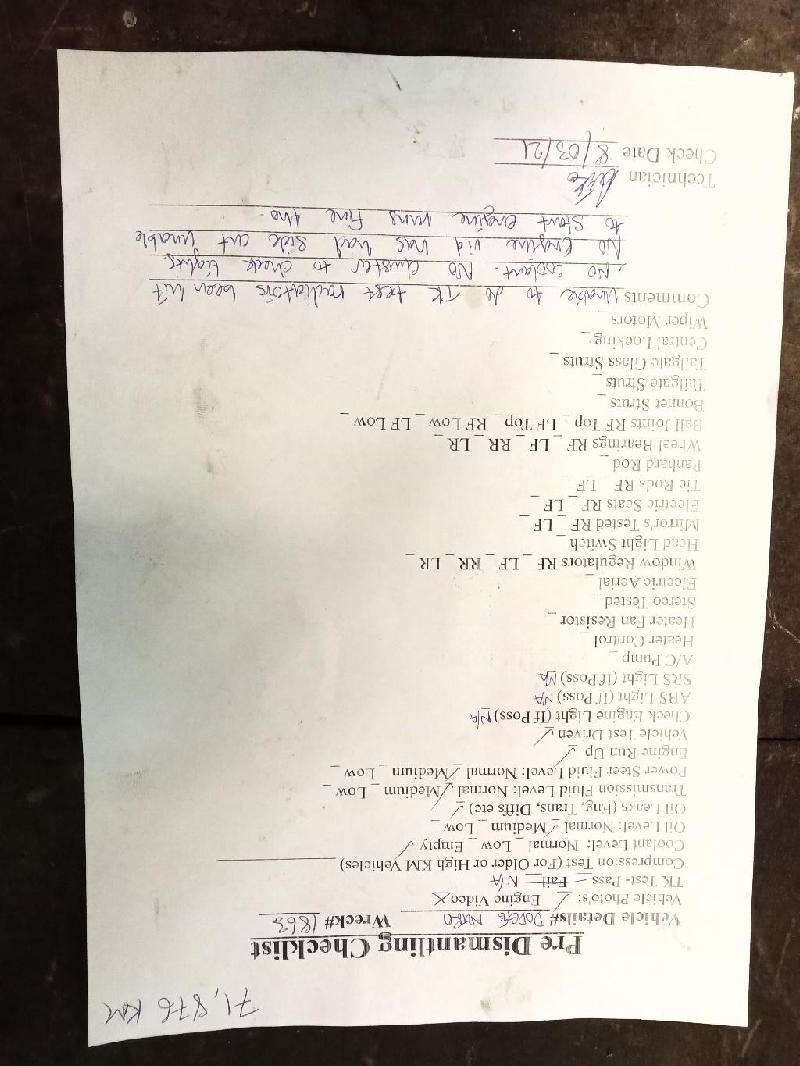 71,876 KM
Pre Dismantling Checklist
Vehicle Details# DODGE NITRO Wreck# 1863
Vehicle Photo's: ✓ Engine Video x
TK Test- Pass _ Fail _ N/A
Compression Test (For Older or High KM Vehicles)
Coolant Level: Normal _ Low _ Empty ✓
Oil Level: Normal ✓ Medium _ Low _
Oil Leaks (Eng, Trans, Diffs etc) ✓
Transmission Fluid Level: Normal ✓ Medium _ Low _
Power Steer Fluid Level: Normal ✓ Medium _ Low _
Engine Run Up ✓
Vehicle Test Driven ✓
Check Engine Light (If Poss) N/A
ABS Light (If Poss) N/A
SRS Light (If Poss) N/A
A/C Pump _
Heater Control
Heater Fan Resistor _
Stereo Tested
Electric Aerial _
Window Regulators RF _ LF _ RR _ LR _
Head Light Switch _
Mirror's Tested RF _ LF _
Electric Seats RF _ LF _
Tie Rods RF _ LF _
Panhard Rod _
Wheel Bearings RF _ LF _ RR _ LR _
Ball Joints RF Top _ LF Top _ RF Low _ LF Low _
Bonnet Struts _
Tailgate Struts _
Tailgate Glass Struts _
Central Locking _
Wiper Motors _
Comments Unable to do TK test radiators been hit
NO Coolant. NO cluster to check lights.
NO Engine vid has had side cut unable
to start engine runs fine tho.
Technician
Check Date 8/03/21